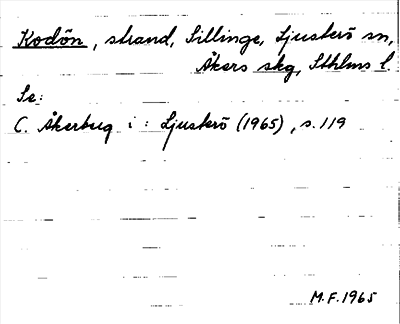 Kodön, strand, Sillinge, Ljusterö sn,
Åkers skg, Sthlms l.
Se:
C. Åkerberg i: Ljusterö (1965), s. 119
M.F. 1965